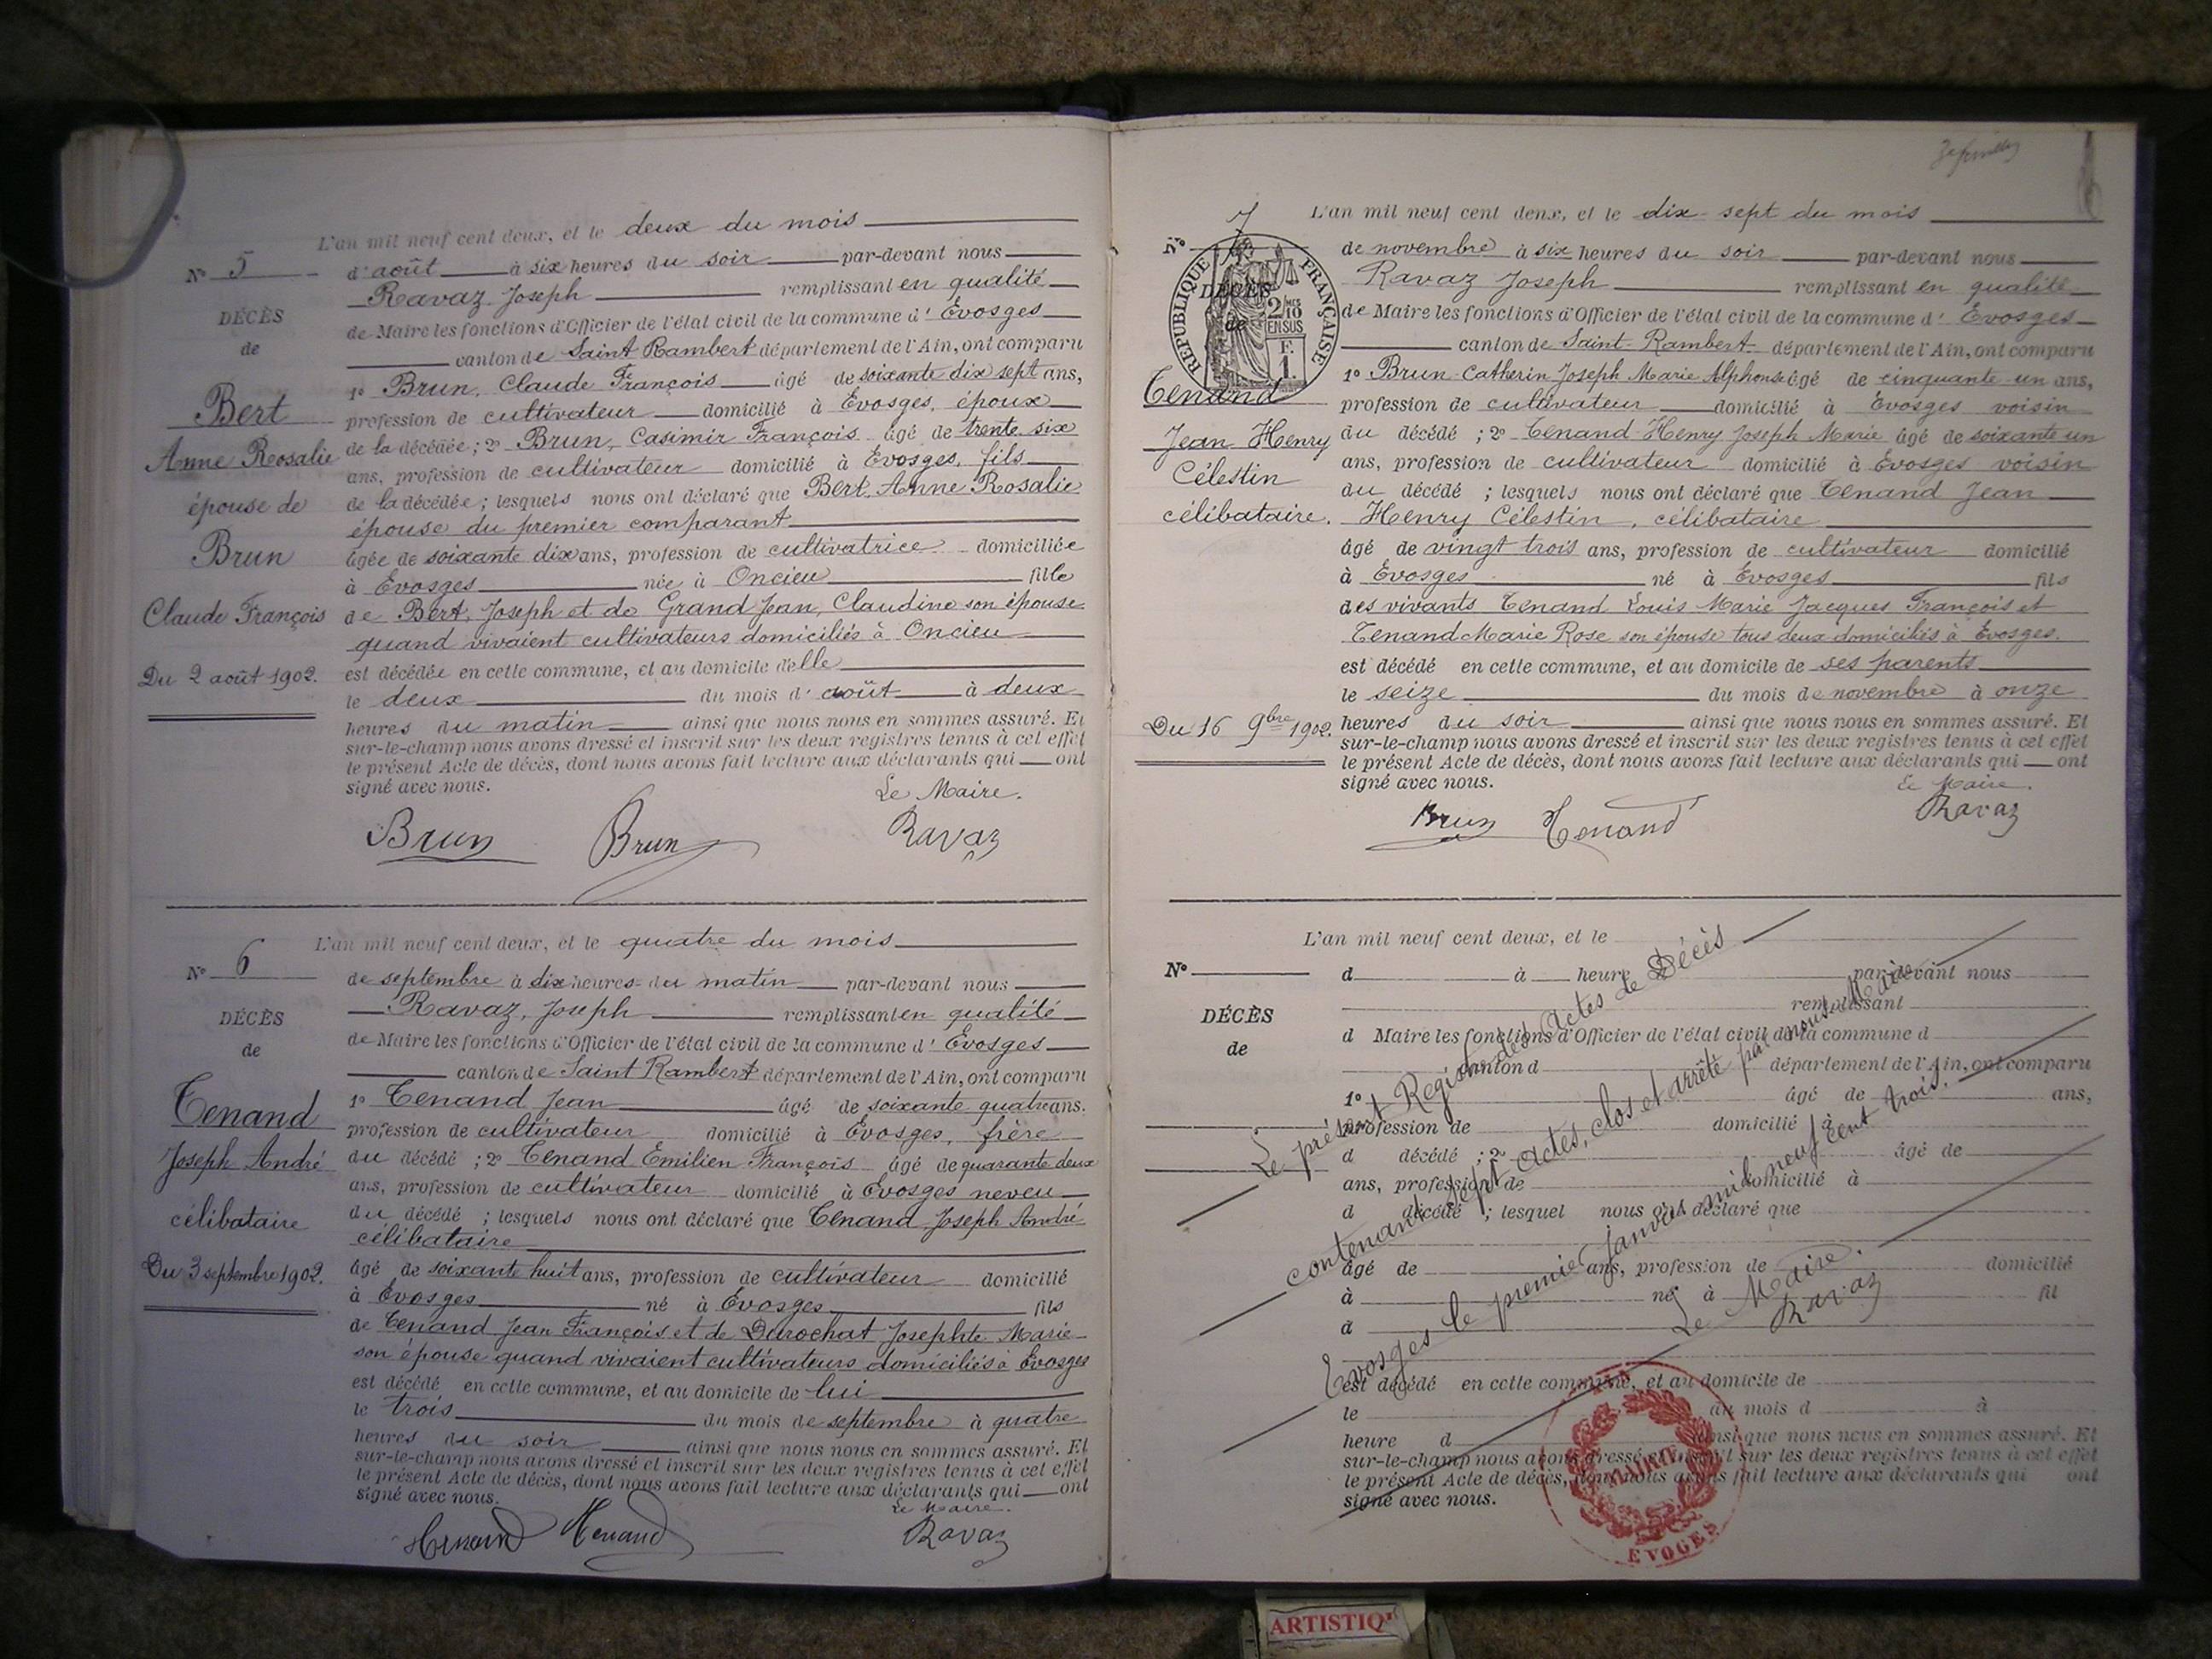 L'an mil neuf cent deux, et le deux du mois
N° 5
d'août à six heures du soir par-devant nous
Ravaz Joseph remplissant en qualité
DÉCÈS
de
de Maire les fonctions d'Officier de l'état civil de la commune d'Evosges
canton de Saint Rambert département de l'Ain, ont comparu
1° Brun, Claude François âgé de soixante dix sept ans,
Bert
profession de cultivateur domicilié à Evosges, époux
Anne Rosalie
de la décédée ; 2° Brun, Casimir François âgé de trente six
ans, profession de cultivateur domicilié à Evosges, fils
épouse de
de la décédée ; lesquels nous ont déclaré que Bert, Anne Rosalie
épouse du premier comparant
Brun
âgée de soixante dix ans, profession de cultivatrice domiciliée
à Evosges née à Oncieu fille
Claude François
de Bert, Joseph et de Grand Jean, Claudine son épouse
quand vivaient cultivateurs domiciliés à Oncieu
Du 2 août 1902.
est décédée en cette commune, et au domicile d'elle
le deux du mois d'août à deux
heures du matin ainsi que nous nous en sommes assuré. Et
sur-le-champ nous avons dressé et inscrit sur les deux registres tenus à cet effet
le présent Acte de décès, dont nous avons fait lecture aux déclarants qui ont
signé avec nous.
Le Maire.
Brun Brun Ravaz
L'an mil neuf cent deux, et le quatre du mois
N° 6
de septembre à dix heures du matin par-devant nous
Ravaz, Joseph remplissant en qualité
DÉCÈS
de
de Maire les fonctions d'Officier de l'état civil de la commune d'Evosges
canton de Saint Rambert département de l'Ain, ont comparu
1° Tenand Jean âgé de soixante quatre ans.
Tenand
profession de cultivateur domicilié à Evosges, frère
Joseph André
du décédé ; 2° Tenand Emilien François âgé de quarante deux
ans, profession de cultivateur domicilié à Evosges neveu
célibataire
du décédé ; lesquels nous ont déclaré que Tenand Joseph André
célibataire
Du 3 septembre 1902.
âgé de soixante huit ans, profession de cultivateur domicilié
à Evosges né à Evosges fils
de Tenand Jean François et de Durochat Josephte Marie
son épouse quand vivaient cultivateurs domiciliés à Evosges
est décédé en cette commune, et au domicile de lui
le trois du mois de septembre à quatre
heures du soir ainsi que nous nous en sommes assuré. Et
sur-le-champ nous avons dressé et inscrit sur les deux registres tenus à cet effet
le présent Acte de décès, dont nous avons fait lecture aux déclarants qui ont
signé avec nous.
Le Maire.
Tenand Tenand Ravaz
L'an mil neuf cent deux, et le dix-sept du mois
N° 7
de novembre à six heures du soir par-devant nous
Ravaz Joseph remplissant en qualité
RÉPUBLIQUE FRANÇAISE
2/10 MES EN SUS
F. 1.
DÉCÈS
de
de Maire les fonctions d'Officier de l'état civil de la commune d'Evosges
canton de Saint-Rambert département de l'Ain, ont comparu
1° Brun Catherin Joseph Marie Alphonse âgé de cinquante un ans,
Tenand
profession de cultivateur domicilié à Evosges voisin
Jean Henry
du décédé ; 2° Tenand Henry Joseph Marie âgé de soixante un
ans, profession de cultivateur domicilié à Evosges voisin
Célestin
du décédé ; lesquels nous ont déclaré que Tenand Jean
célibataire.
Henry Célestin, célibataire
âgé de vingt trois ans, profession de cultivateur domicilié
à Evosges né à Evosges fils
des vivants Tenand Louis Marie Jacques François et
Tenand Marie Rose son épouse tous deux domiciliés à Evosges.
est décédé en cette commune, et au domicile de ses parents
le seize du mois de novembre à onze
Du 16 9bre 1902.
heures du soir ainsi que nous nous en sommes assuré. Et
sur-le-champ nous avons dressé et inscrit sur les deux registres tenus à cet effet
le présent Acte de décès, dont nous avons fait lecture aux déclarants qui ont
signé avec nous.
Le Maire.
Brun Tenand Ravaz
L'an mil neuf cent deux, et le
N°
d à heure d par-devant nous
remplissant
DÉCÈS
de
d Maire les fonctions d'Officier de l'état civil de la commune d
canton d département de l'Ain, ont comparu
1° âgé de ans,
profession de domicilié à
d décédé ; 2° âgé de
ans, profession de domicilié à
d décédé ; lesquel nous ont déclaré que
âgé de ans, profession de domicilié
à né à fil
d
est décédé en cette commune, et au domicile de
le du mois d à
heure d ainsi que nous nous en sommes assuré. Et
sur-le-champ nous avons dressé et inscrit sur les deux registres tenus à cet effet
le présent Acte de décès, dont nous avons fait lecture aux déclarants qui ont
signé avec nous.
Le présent Registre des Actes de Décès
contenant sept actes, clos et arrêté par nous Maire
Evosges le premier Janvier mil neuf cent trois.
Le Maire.
Ravaz
MAIRIE
EVOGES
ARTISTIQ